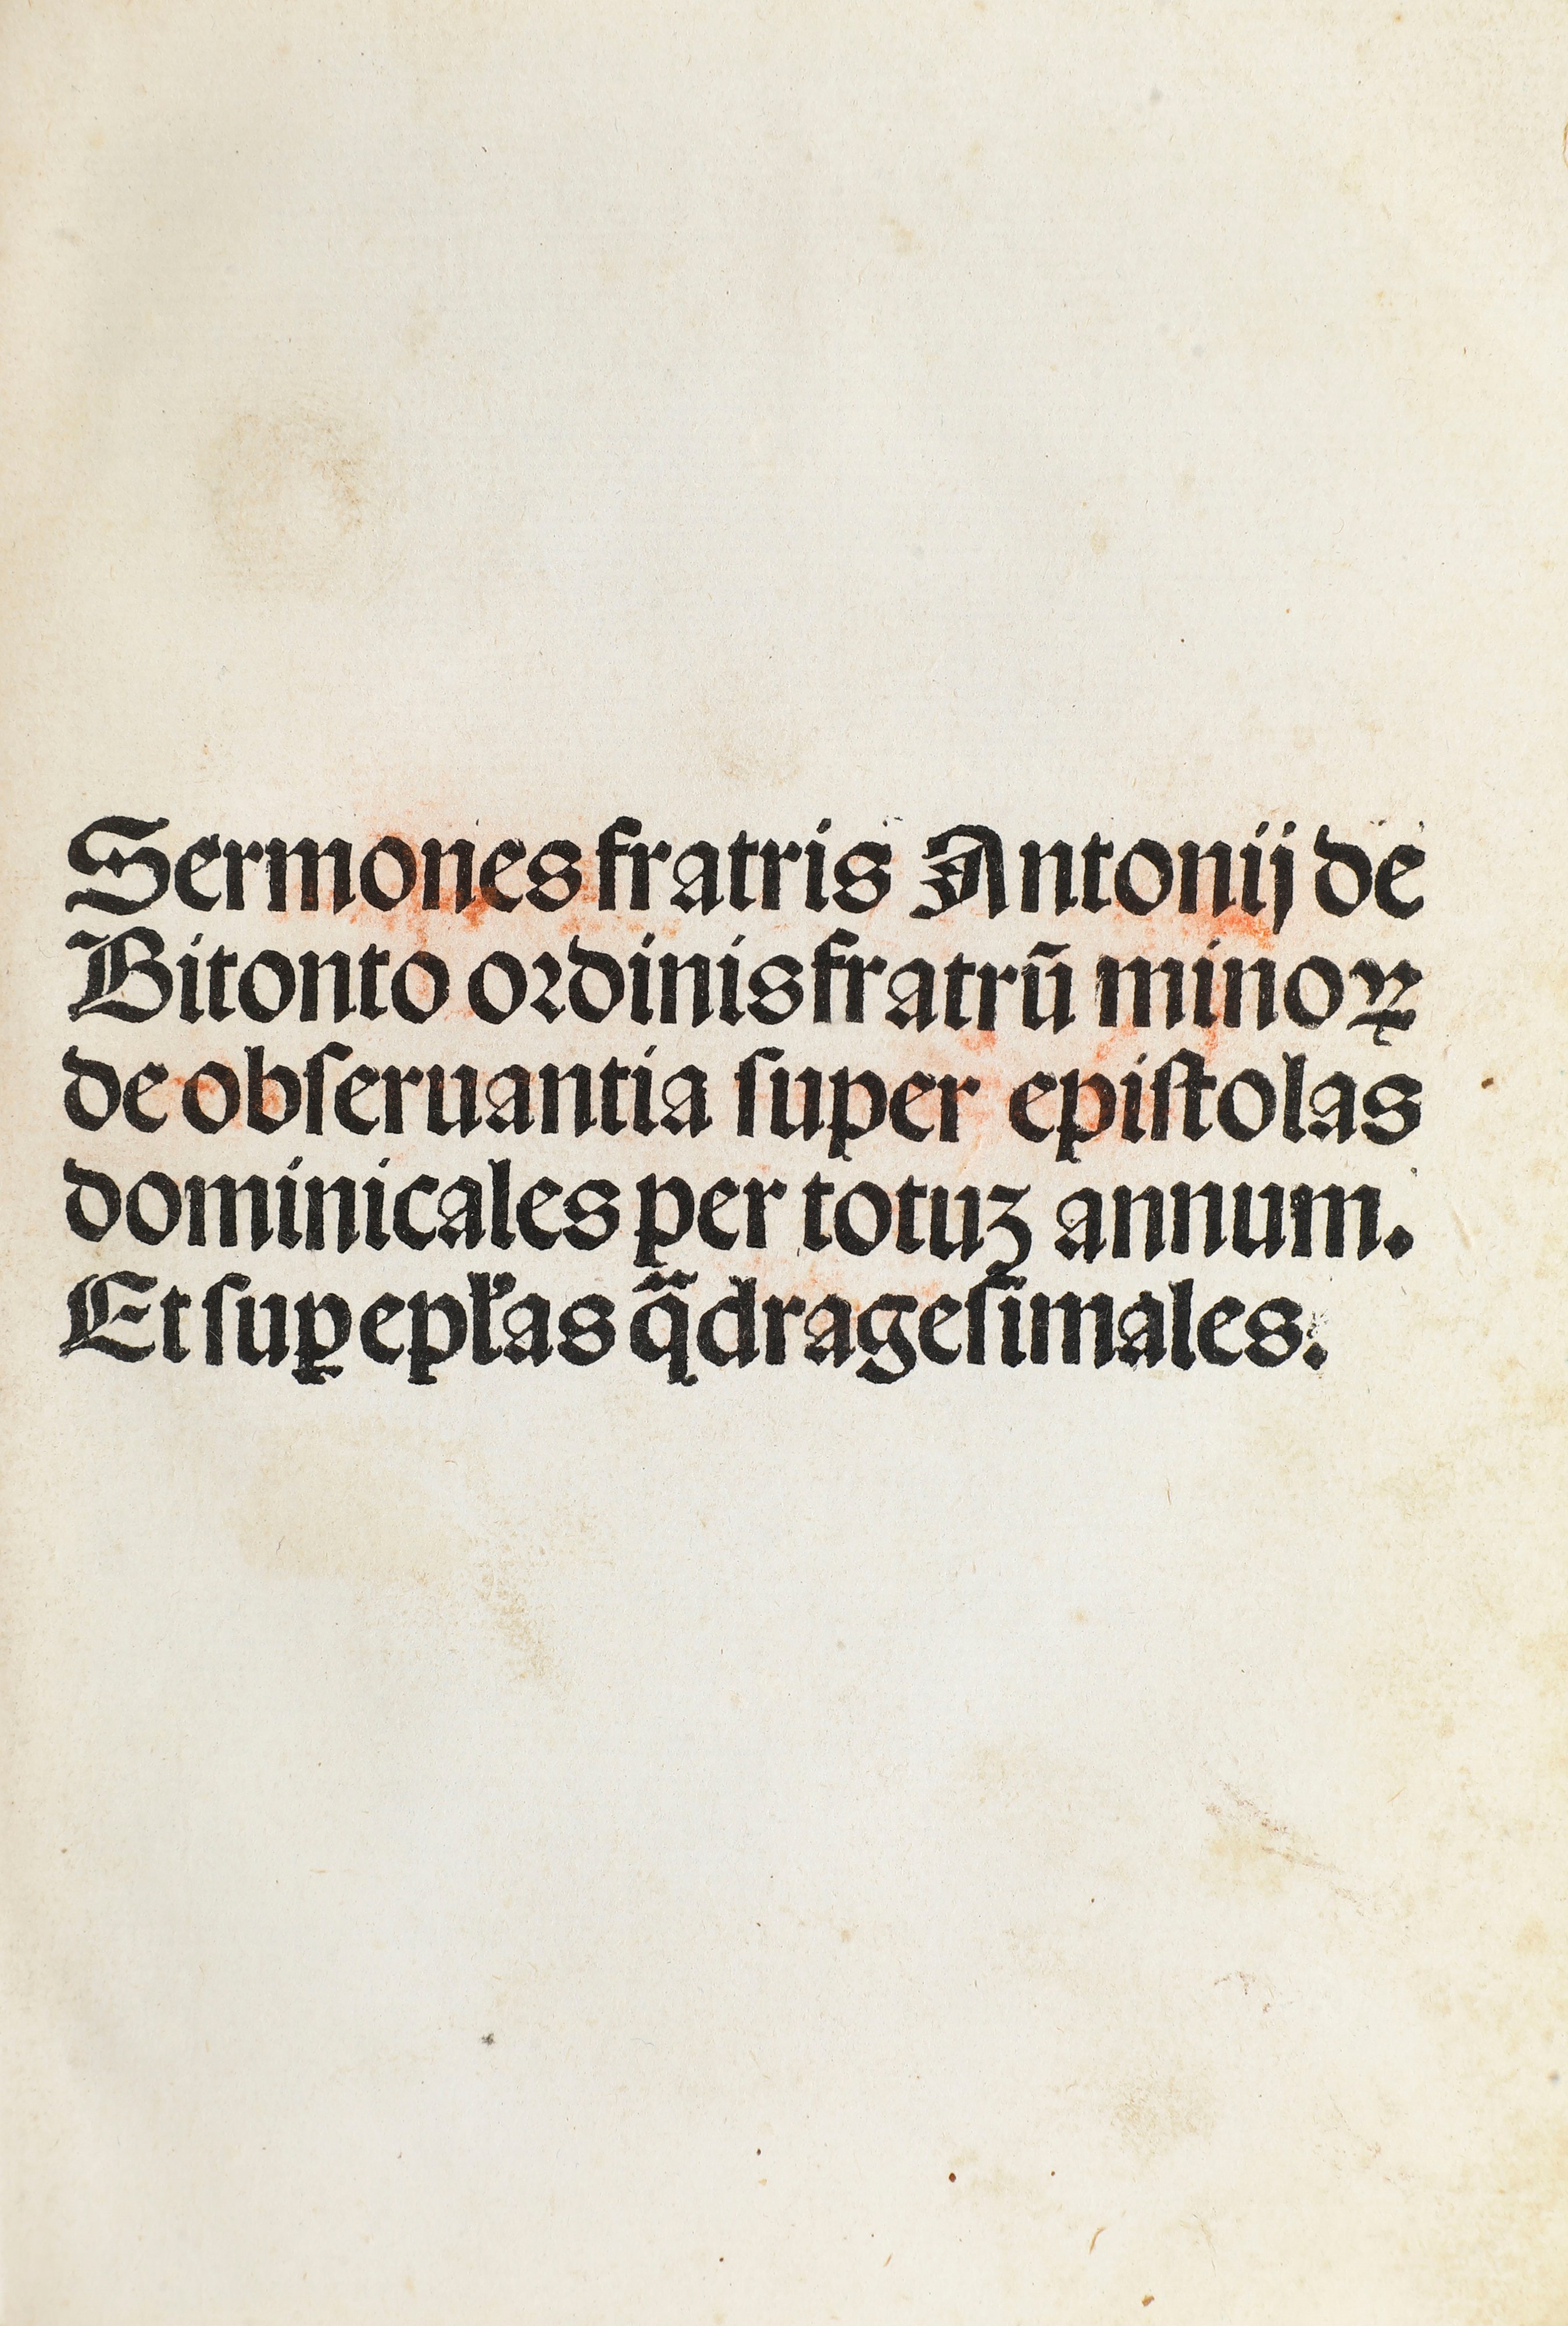 Sermones fratris Antonij de
Bitonto oꝛdinis fratrū minoꝝ
de obſeruantia ſuper epiſtolas
dominicales per totuz annum.
Et ſuꝑ epłas q̈dragesimales.